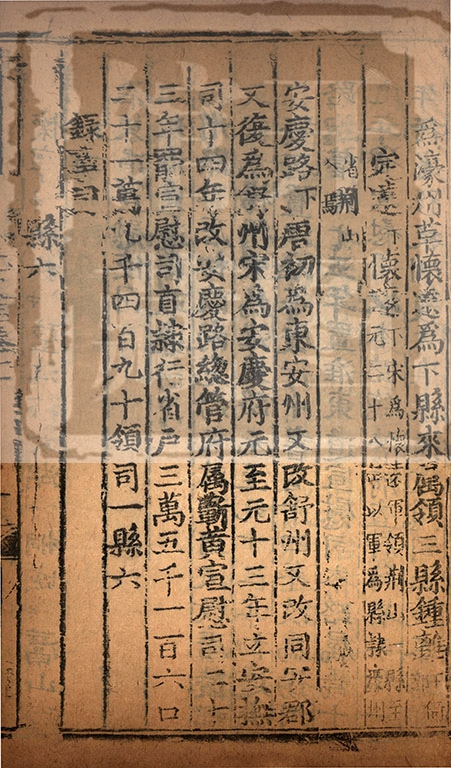 年為濠州草懷遠為下縣來屬領三縣鍾離
定遠下懷遠下宋為懷遠軍領荊山一縣至
元二十八年以軍為縣隷
省荊山
安慶路下唐初為東安州又改舒州又改同安郡
又復為舒州宋為安慶府元至元十三年立安撫
司十四年改安慶路總管府属蘄黄宣慰司二十
三年罷宣慰司直隷行省戶三萬五千一百六口
二十一萬九千四百九十領司一縣六
錄事司
縣六